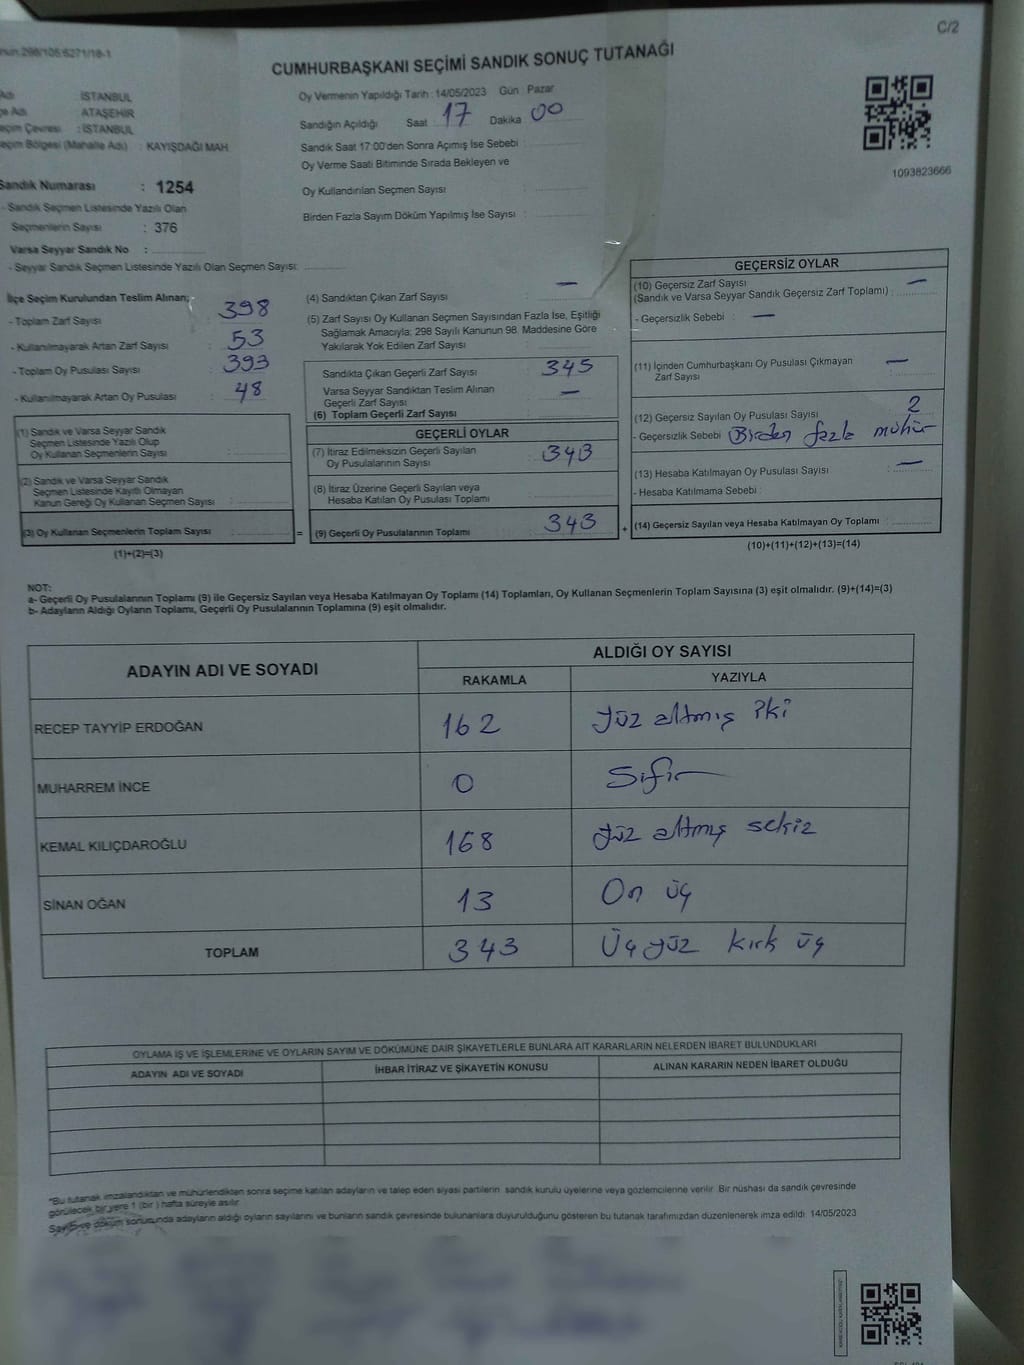 C/2
CUMHURBAŞKANI SEÇİMİ SANDIK SONUÇ TUTANAĞI
: İSTANBUL
: ATAŞEHİR
: İSTANBUL
: KAYIŞDAĞI MAH
Sandık Numarası : 1254
- Sandık Seçmen Listesinde Yazılı Olan
Seçmenlerin Sayısı : 376
Varsa Seyyar Sandık No :
- Seyyar Sandık Seçmen Listesinde Yazılı Olan Seçmen Sayısı:
Oy Vermenin Yapıldığı Tarih : 14/05/2023 Gün : Pazar
Sandığın Açıldığı Saat 17 Dakika 00
Sandık Saat 17:00'den Sonra Açımış İse Sebebi :
Oy Verme Saati Bitiminde Sırada Bekleyen ve
Oy Kullandırılan Seçmen Sayısı :
Birden Fazla Sayım Döküm Yapılmış İse Sayısı :
1093823666
İlçe Seçim Kurulundan Teslim Alınan;
- Toplam Zarf Sayısı : 398
- Kullanılmayarak Artan Zarf Sayısı : 53
- Toplam Oy Pusulası Sayısı : 393
- Kullanılmayarak Artan Oy Pusulası : 48
(1) Sandık ve Varsa Seyyar Sandık
Seçmen Listesinde Yazılı Olup
Oy Kullanan Seçmenlerin Sayısı :
(2) Sandık ve Varsa Seyyar Sandık
Seçmen Listesinde Kayıtlı Olmayan
Kanun Gereği Oy Kullanan Seçmen Sayısı :
(3) Oy Kullanan Seçmenlerin Toplam Sayısı :
(1)+(2)=(3)
(4) Sandıktan Çıkan Zarf Sayısı : —
(5) Zarf Sayısı Oy Kullanan Seçmen Sayısından Fazla İse, Eşitliği
Sağlamak Amacıyla; 298 Sayılı Kanunun 98. Maddesine Göre
Yakılarak Yok Edilen Zarf Sayısı :
Sandıkta Çıkan Geçerli Zarf Sayısı : 345
Varsa Seyyar Sandıktan Teslim Alınan
Geçerli Zarf Sayısı : —
(6) Toplam Geçerli Zarf Sayısı :
GEÇERLİ OYLAR
(7) İtiraz Edilmeksizin Geçerli Sayılan
Oy Pusulalarının Sayısı : 343
(8) İtiraz Üzerine Geçerli Sayılan veya
Hesaba Katılan Oy Pusulası Toplamı :
= (9) Geçerli Oy Pusulalarının Toplamı : 343 +
GEÇERSİZ OYLAR
(10) Geçersiz Zarf Sayısı
(Sandık ve Varsa Seyyar Sandık Geçersiz Zarf Toplamı) : —
- Geçersizlik Sebebi : —
(11) İçinden Cumhurbaşkanı Oy Pusulası Çıkmayan
Zarf Sayısı : —
(12) Geçersiz Sayılan Oy Pusulası Sayısı : 2
- Geçersizlik Sebebi : Birden fazla mühür
(13) Hesaba Katılmayan Oy Pusulası Sayısı : —
- Hesaba Katılmama Sebebi :
(14) Geçersiz Sayılan veya Hesaba Katılmayan Oy Toplamı :
(10)+(11)+(12)+(13)=(14)
NOT:
a- Geçerli Oy Pusulalarının Toplamı (9) ile Geçersiz Sayılan veya Hesaba Katılmayan Oy Toplamı (14) Toplamları, Oy Kullanan Seçmenlerin Toplam Sayısına (3) eşit olmalıdır. (9)+(14)=(3)
b- Adayların Aldığı Oyların Toplamı, Geçerli Oy Pusulalarının Toplamına (9) eşit olmalıdır.
ADAYIN ADI VE SOYADI ALDIĞI OY SAYISI
RAKAMLA YAZIYLA
RECEP TAYYİP ERDOĞAN 162 Yüz altmış iki
MUHARREM İNCE 0 Sıfır
KEMAL KILIÇDAROĞLU 168 Yüz altmış sekiz
SİNAN OĞAN 13 On üç
TOPLAM 343 Üçyüz kırk üç
OYLAMA İŞ VE İŞLEMLERİNE VE OYLARIN SAYIM VE DÖKÜMÜNE DAİR ŞİKAYETLERLE BUNLARA AİT KARARLARIN NELERDEN İBARET BULUNDUKLARI
ADAYIN ADI VE SOYADI İHBAR İTİRAZ VE ŞİKAYETİN KONUSU ALINAN KARARIN NEDEN İBARET OLDUĞU
*Bu tutanak imzalandıktan ve mühürlendikten sonra seçime katılan adayların ve talep eden siyasi partilerin sandık kurulu üyelerine veya gözlemcilerine verilir. Bir nüshası da sandık çevresinde
görülecek bir yere 1 (bir) hafta süreyle asılır.
Sayım ve döküm sonucunda adayların aldığı oyların sayılarını ve bunların sandık çevresinde bulunanlara duyurulduğunu gösteren bu tutanak tarafımızdan düzenlenerek imza edildi. 14/05/2023